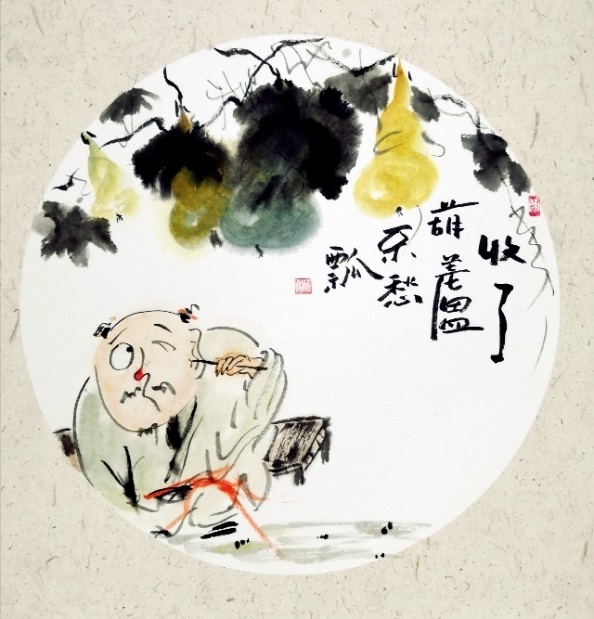 收了
葫蘆
不愁
瓢